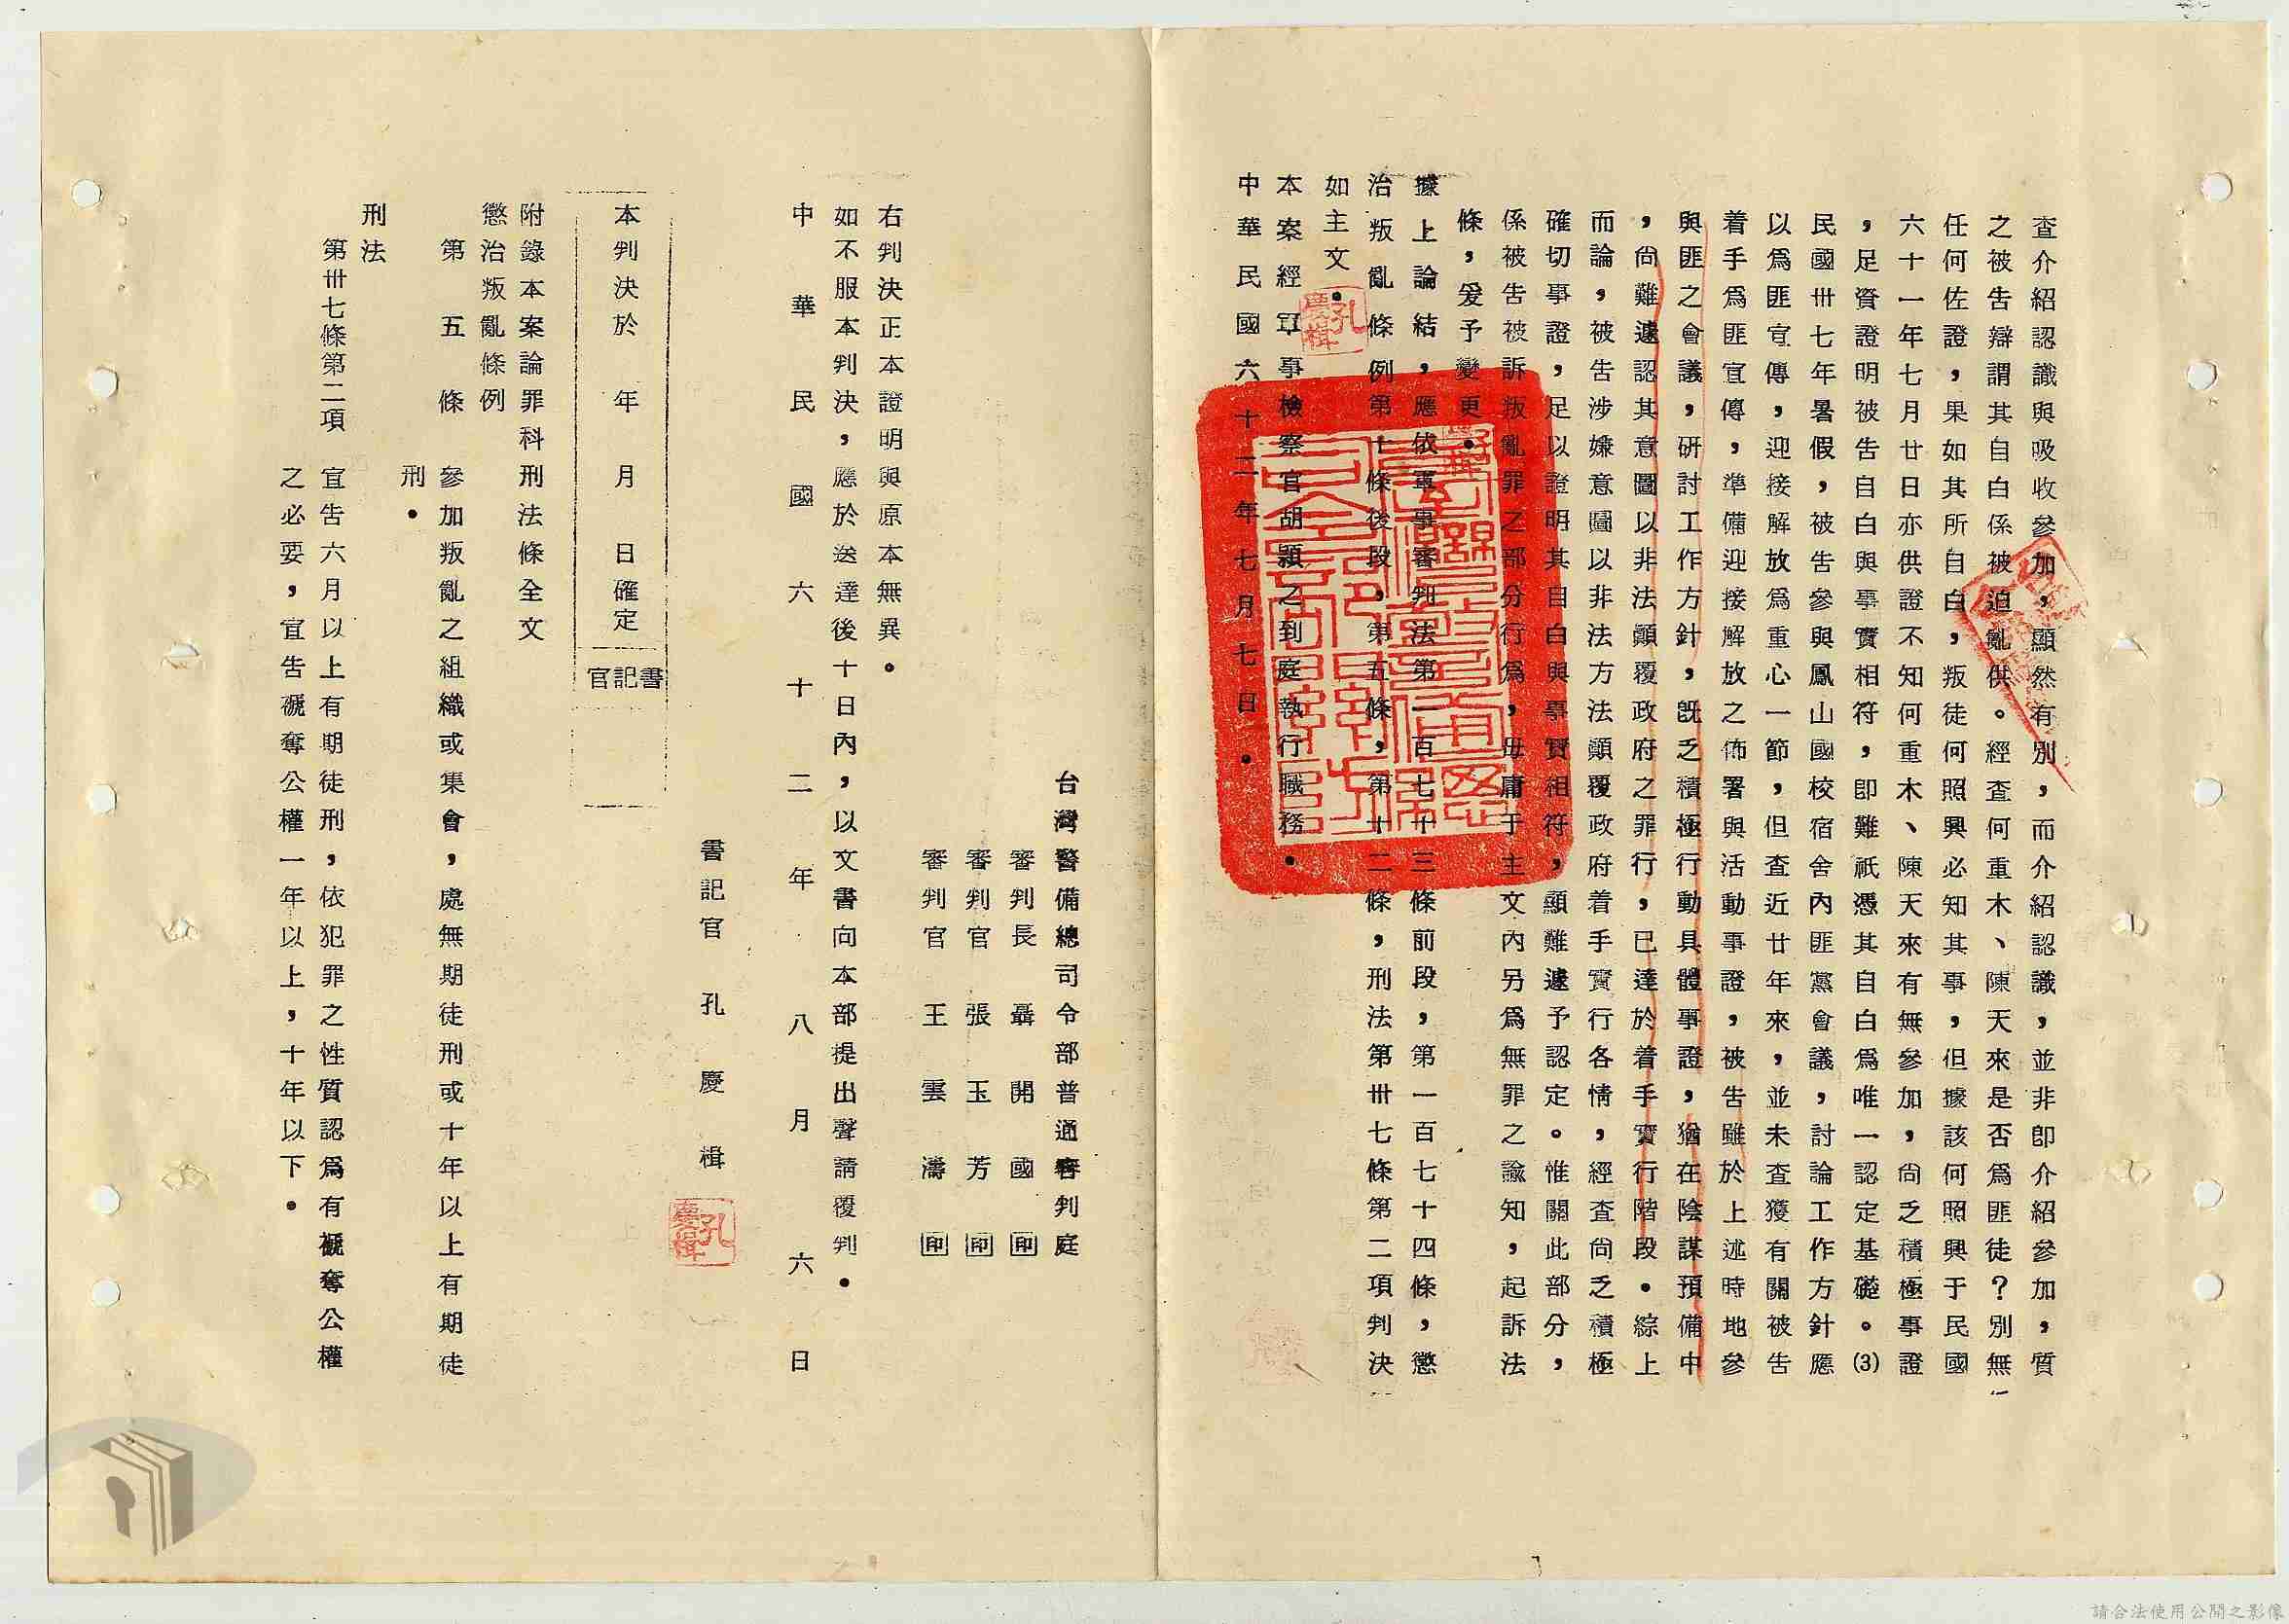 查介紹認識與吸收參加，顯然有別，而介紹認識，並非卽介紹參加，質
之被告辯謂其自白係被迫亂供。經查何重木、陳天來是否爲匪徒？別無
任何佐證，果如其所自白，叛徒何照興必知其事，但據該何照興于民國
六十一年七月廿日亦供證不知何重木、陳天來有無參加，尙乏積極事證
，足資證明被告自白與事實相符，卽難祇憑其自白爲唯一認定基礎。⑶
民國卅七年暑假，被告參與鳳山國校宿舍內匪黨會議，討論工作方針應
以爲匪宣傳，迎接解放爲重心一節，但查近廿年來，並未查獲有關被告
着手爲匪宣傳，準備迎接解放之佈署與活動事證，被告雖於上述時地參
與匪之會議，研討工作方針，旣乏積極行動具體事證，猶在陰謀預備中
，尙難遽認其意圖以非法顚覆政府之罪行，已達於着手實行階段．綜上
而論，被告涉嫌意圖以非法方法顚覆政府着手實行各情，經查尙乏積極
確切事證，足以證明其自白與事實相符，顯難遽予認定。惟關此部分，
係被告被訴叛亂罪之部分行爲，毋庸于主文內另爲無罪之諭知，起訴法
條，爰予變更．
據上論結，應依軍事審判法第一百七十三條前段，第一百七十四條，懲
治叛亂條例第十條後段，第五條，第十二條，刑法第卅七條第二項判決
如主文．
孔慶楫
本案經軍事檢察官胡潁之到庭執行職務．
中華民國六十二年七月七日．
台灣警備總司令部普通審判庭
審判長 聶開國 印
審判官 張玉芳 印
審判官 王雲濤 印
右判決正本證明與原本無異．
如不服本判決，應於送達後十日內，以文書向本部提出聲請覆判．
中華民國六十二年八月六日
書記官 孔慶楫
孔慶楫
本判決於 年 月 日確定
書記官
附錄本案論罪科刑法條全文
懲治叛亂條例
第五條 參加叛亂之組織或集會，處無期徒刑或十年以上有期徒
刑．
刑法
第卅七條第二項 宣告六月以上有期徒刑，依犯罪之性質認爲有褫奪公權
之必要，宣告褫奪公權一年以上，十年以下．
請合法使用公開之影像